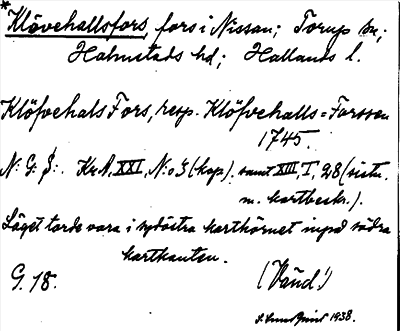 *Klövehallsfors, fors i Nissan; Torup sn;
Halmstads hd; Hallands l.
Klöfvehals Fors, resp. Klöfvehalls=Forssen
1745.
N: G. S:. Kr A, XXI, N:o 3 (kop). samt XIII, I, 28 (sistn.
m. kartbeskr.).
Läget torde vara i sydöstra karthörnet inpå södra
kartkanten.
G. 18.
(Vänd!)
1938.